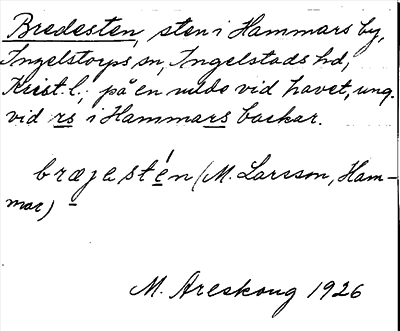 Bredesten, sten i Hammars by,
Ingelstorps sn, Ingelstads hd,
Krist. l., på en udde vid havet, ung.
vid rs i Hammars backar.
bræjestén (M. Larsson, Ham-
mar)
M. Areskoug 1926